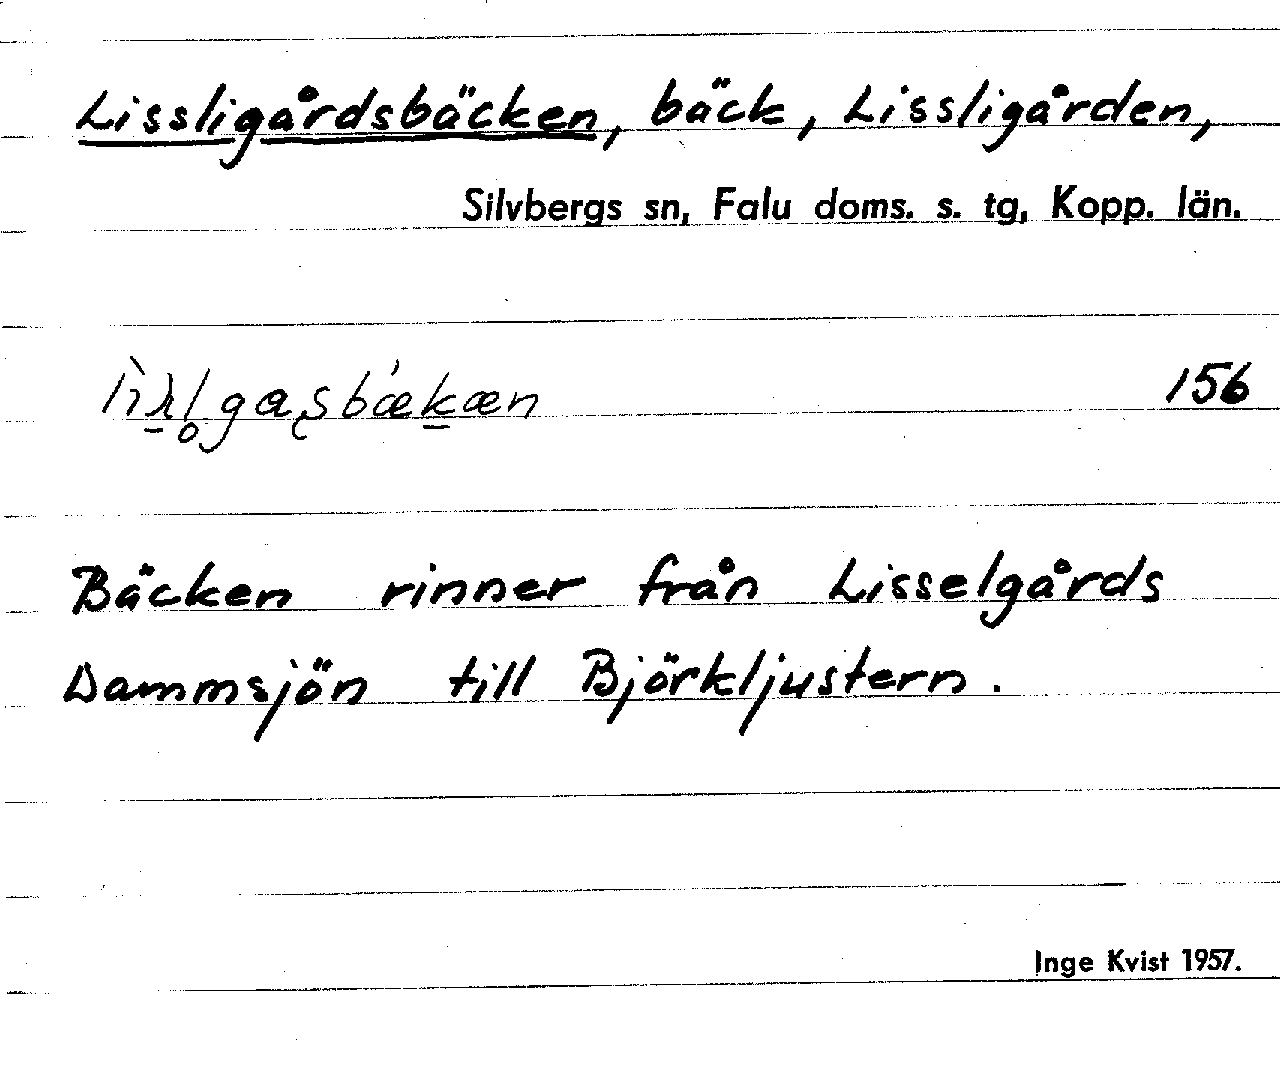 Lissligårdsbäcken, bäck, Lissligården,
Silvbergs sn, Falu doms. s. tg, Kopp. län.
156
Bäcken rinner från Lisselgårds
Dammsjön till Björkljustern.
Inge Kvist 1957.